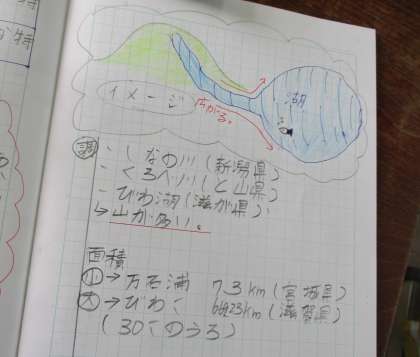 が特
湖
イメージ
広がる。
調
・しなの川(新潟県)
・くろべ川(と山県)
・びわ湖(滋が県)
↳山が多い。
面積
小→万石浦 7.3km(宮城県)
大→びわこ (滋賀県)